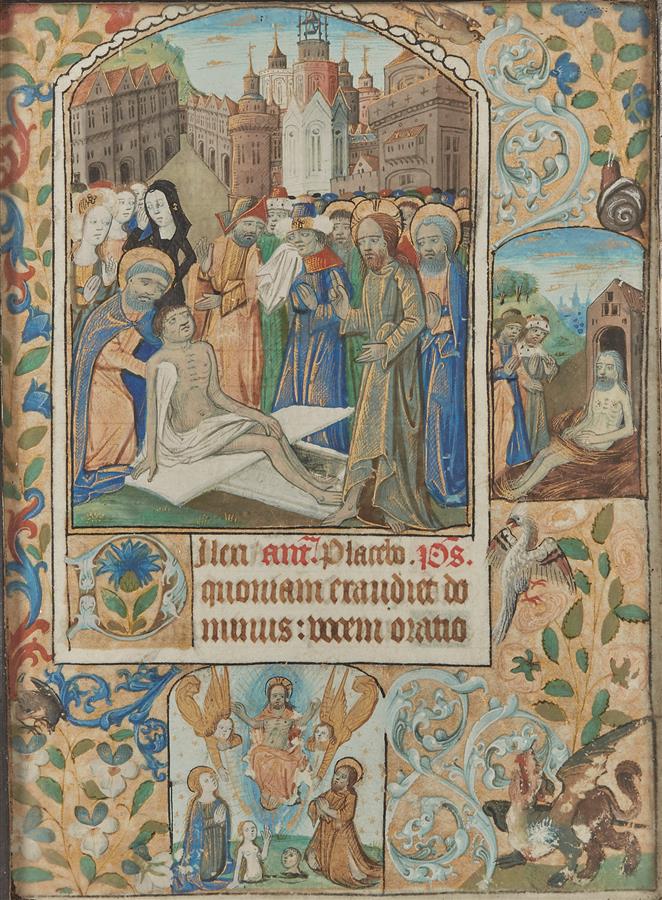 Dilexi ant̄. Placebo. p̄s.
quoniam exaudiet do
minus: vocem oratio